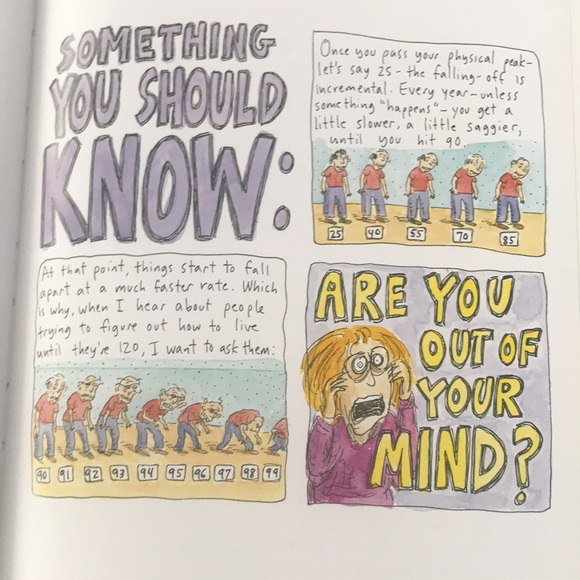 SOMETHING
YOU SHOULD
KNOW:
Once you pass your physical peak-
let's say 25 - the falling-off is
incremental. Every year-unless
something "happens"- you get a
little slower, a little saggier,
until you hit 90.
25 40 55 70 85
At that point, things start to fall
apart at a much faster rate. Which
is why, when I hear about people
trying to figure out how to live
until they're 120, I want to ask them:
90 91 92 93 94 95 96 97 98 99
ARE YOU
OUT OF
YOUR
MIND?